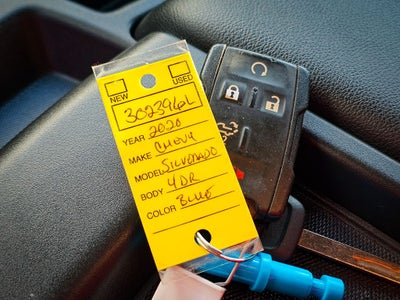 NEW USED
302396L
YEAR 2020
MAKE CHEVY
MODEL SILVERADO
BODY 4DR
COLOR BLUE